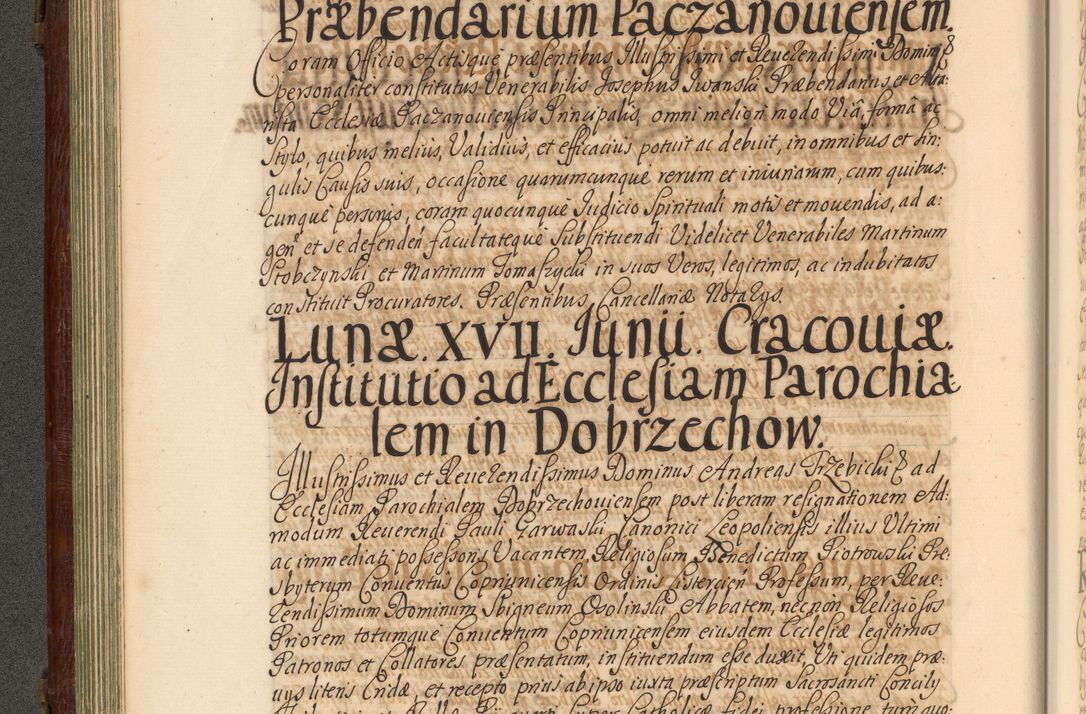 Præbendarium Paczanouiensem.
Coram Officio Actisque præsentibus Illustrissimi et Reuerendissimi Domini
personaliter constitutus Venerabilis Josephus Iwanski Præbendarius et Alta:
rista Ecclesiæ Paczanouiensis Principalis, omni meliori modo Viâ, formâ ac
stylo, quibus melius, Validius, et efficacius potuit ac debuit, in omnibus et sin:
gulis Causis suis, occasione quarumcunque rerum et iniuriarum, cum quibus:
cunque personis, coram quocunque Judicio Spirituali motis et mouendis, ad a:
gen et se defenden facultateque Substituendi Videlicet Venerabiles Martinum
Stobczynski et Martinum Tomaszycki in suos Veros, legitimos, ac indubitatos
constituit Procuratores. Præsentibus Cancellariæ Notarys.
Lunæ. XVII. Junii. Cracouiæ.
Institutio ad Ecclesiam Parochia:
lem in Dobrzechow.
Illustrissimus et Reuerendissimus Dominus Andreas Trzebicki ad
Ecclesiam Parochialem Dobrzechouiensem post liberam resignationem Ad:
modum Reuerendi Pauli Garwaski Canonici Leopoliensis illius Ultimi
ac immediati possessoris Vacantem, Religiosum Benedictum Piotrowski Pre:
sbyterum Conuentus Copriunicensis Ordinis Cistercien Professum, per Reue:
rendissimum Dominum Sbigneum Ossolinski Abbatem, necnon Religiosos
Priorem totumque Conuentum Copriunicensem eiusdem Ecclesiæ legitimos
Patronos et Collatores præsentatum, instituendum esse duxit, Uti quidem præ:
uys literis Cridæ, et recepto prius ab ipso iuxta præscriptum Sacrosancti Concily
Catholicæ fidei professione tum quo: